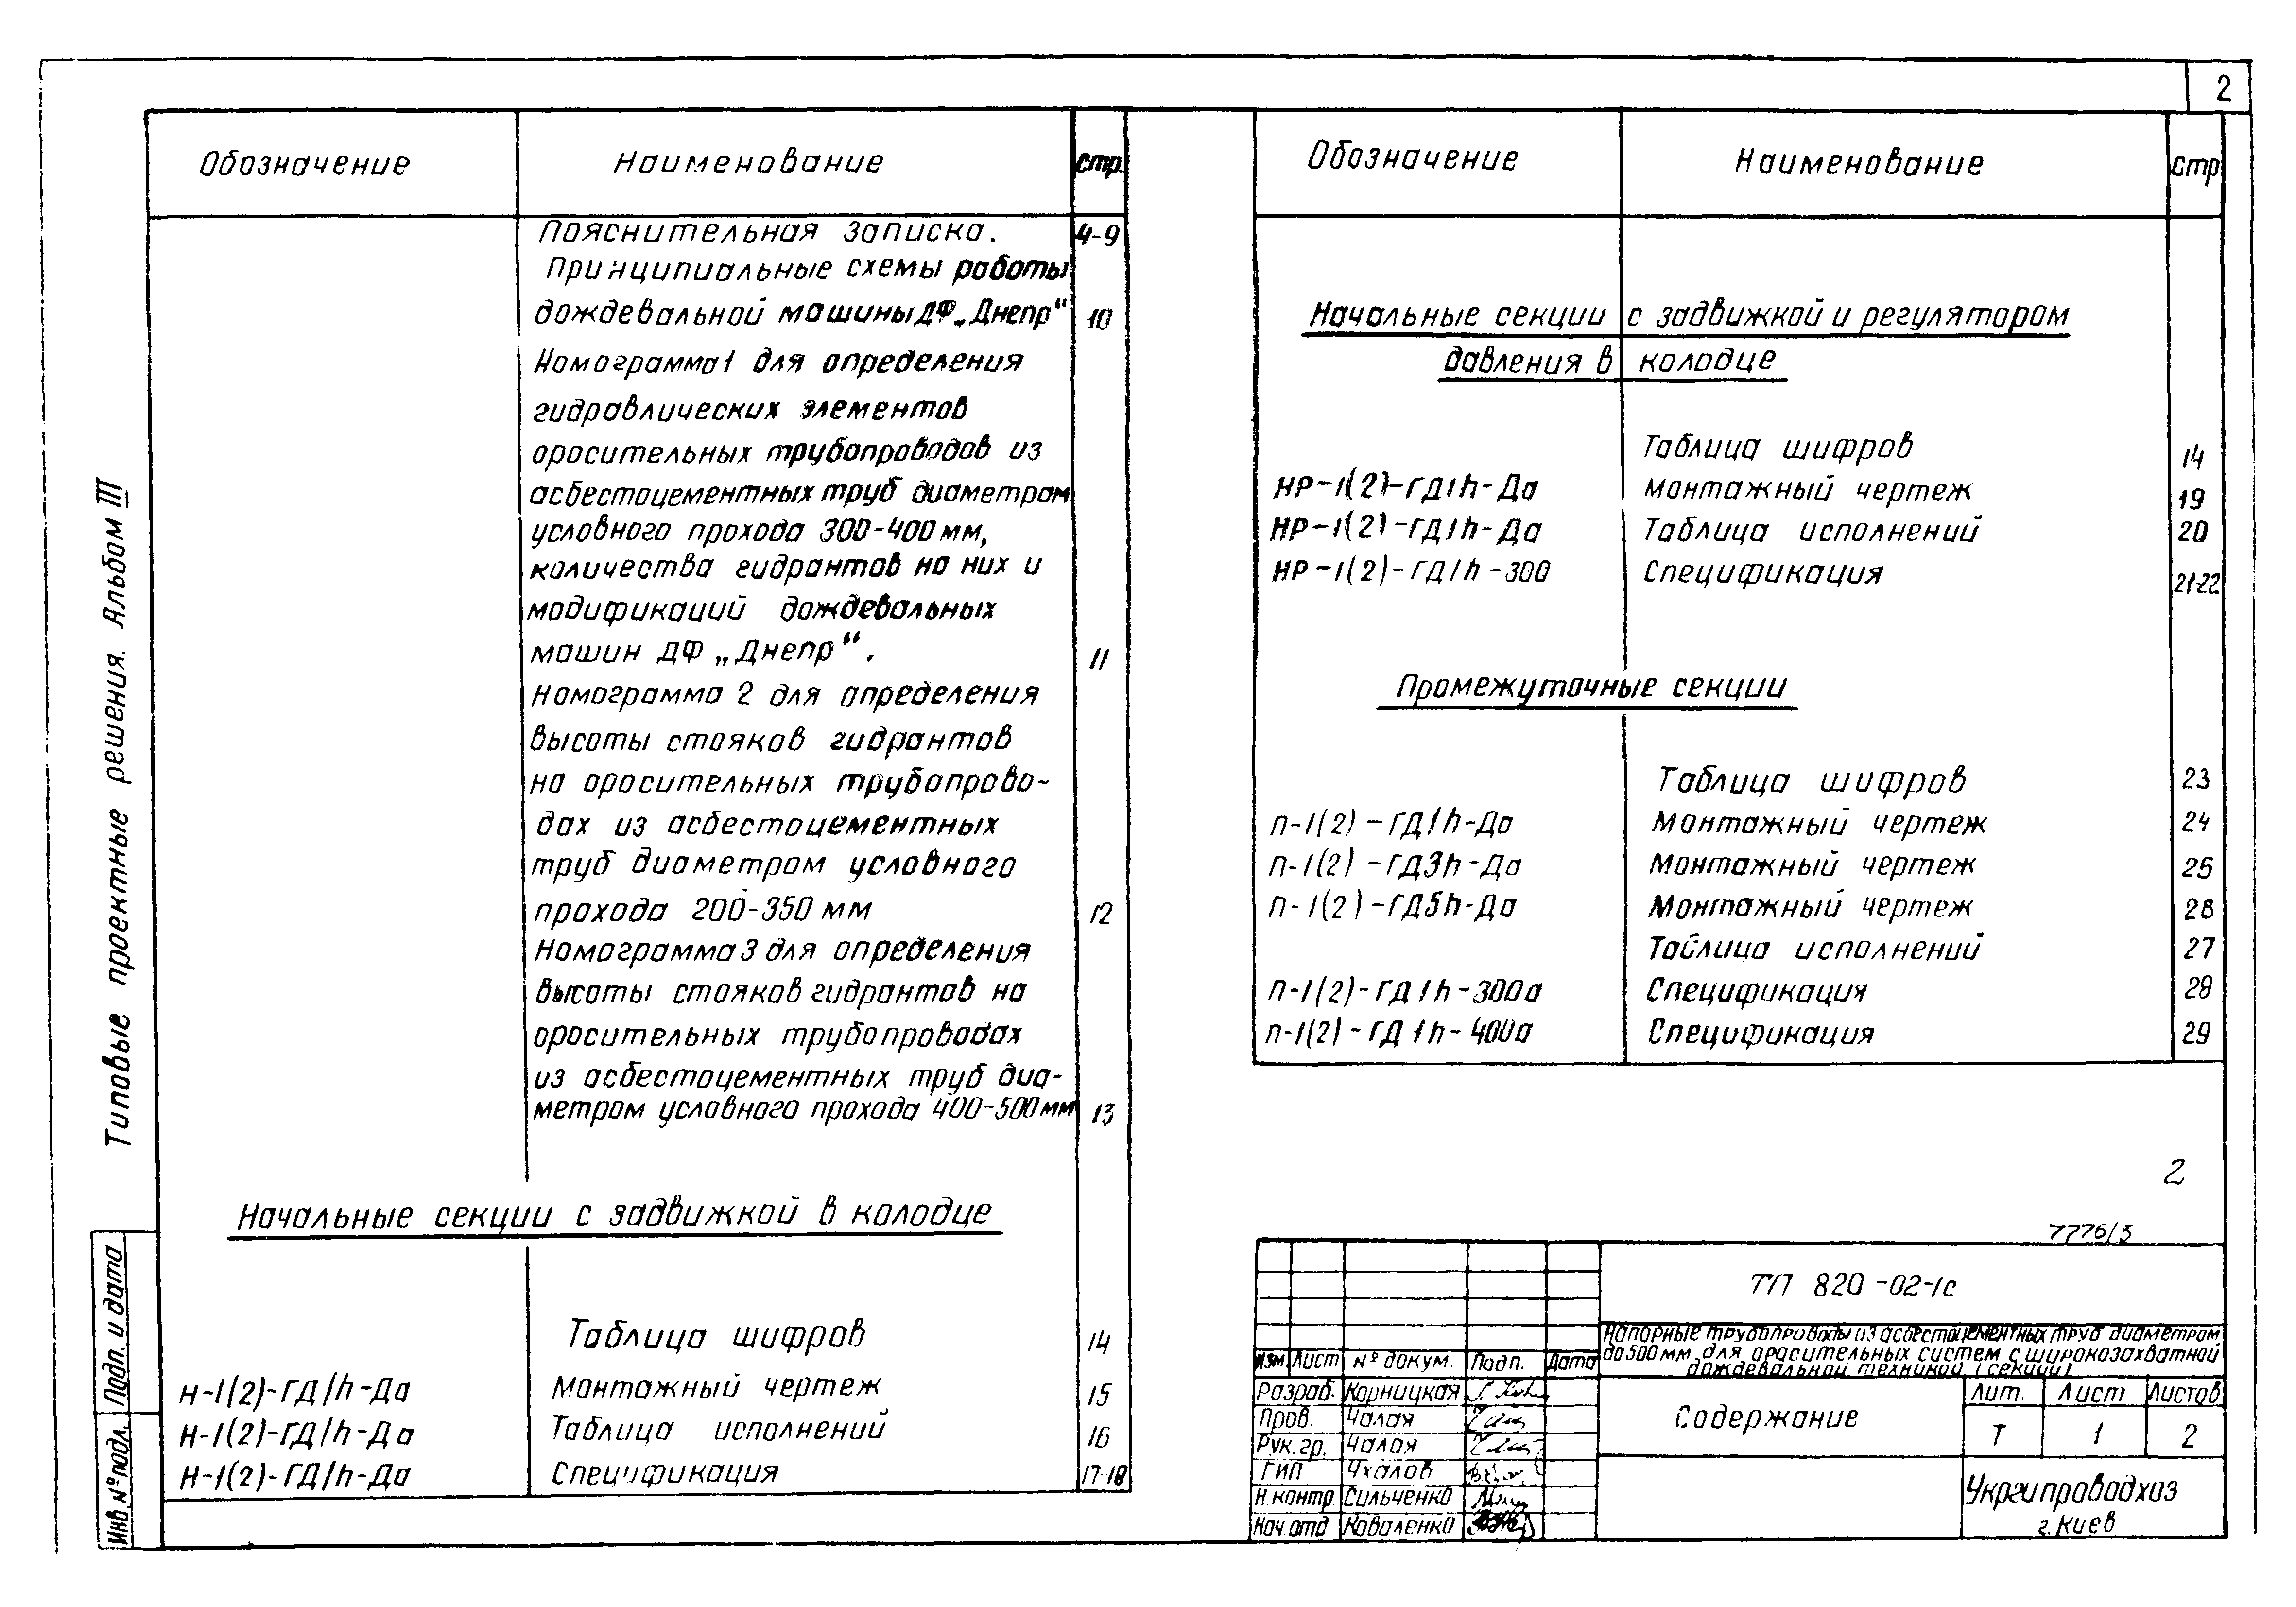 2
Типовые проектные решения. Альбом III
Подп. и дата
Инв. № подл.
Обозначение Наименование Стр.
Пояснительная записка. 4-9
Принципиальные схемы работы
дождевальной машины ДФ „Днепр“ 10
Номограмма 1 для определения
гидравлических элементов
оросительных трубопроводов из
асбестоцементных труб диаметром
условного прохода 300-400 мм,
количества гидрантов на них и
модификаций дождевальных
машин ДФ „Днепр“. 11
Номограмма 2 для определения
высоты стояков гидрантов
на оросительных трубопрово-
дах из асбестоцементных
труб диаметром условного
прохода 200-350 мм 12
Номограмма 3 для определения
высоты стояков гидрантов на
оросительных трубопроводах
из асбестоцементных труб диа-
метром условного прохода 400-500 мм 13
Начальные секции с задвижкой в колодце
Таблица шифров 14
Н-1(2)-ГД1h-Да Монтажный чертеж 15
Н-1(2)-ГД1h-Да Таблица исполнений 16
Н-1(2)-ГД1h-Да Спецификация 17-18
Обозначение Наименование Стр
Начальные секции с задвижкой и регулятором
давления в колодце
Таблица шифров 14
НР-1(2)-ГД1h-Да Монтажный чертеж 19
НР-1(2)-ГД1h-Да Таблица исполнений 20
НР-1(2)-ГД1h-300 Спецификация 21-22
Промежуточные секции
Таблица шифров 23
П-1(2)-ГД1h-Да Монтажный чертеж 24
П-1(2)-ГД3h-Да Монтажный чертеж 25
П-1(2)-ГД5h-Да Монтажный чертеж 26
Таблица исполнений 27
П-1(2)-ГД1h-300а Спецификация 28
П-1(2)-ГД1h-400а Спецификация 29
2
7776/3
ТП 820-02-1с
Напорные трубопроводы из асбестоцементных труб диаметром
до 500 мм для оросительных систем с широкозахватной
дождевальной техникой (секции)
Изм. Лист № докум. Подп. Дата
Разраб. Корницкая
Пров. Чалая
Рук. гр. Чалая
ГИП Чхалов
Н. контр. Сильченко
Нач. отд Коваленко
Содержание
Лит. Лист Листов
Т 1 2
Укргипроводхоз
г. Киев